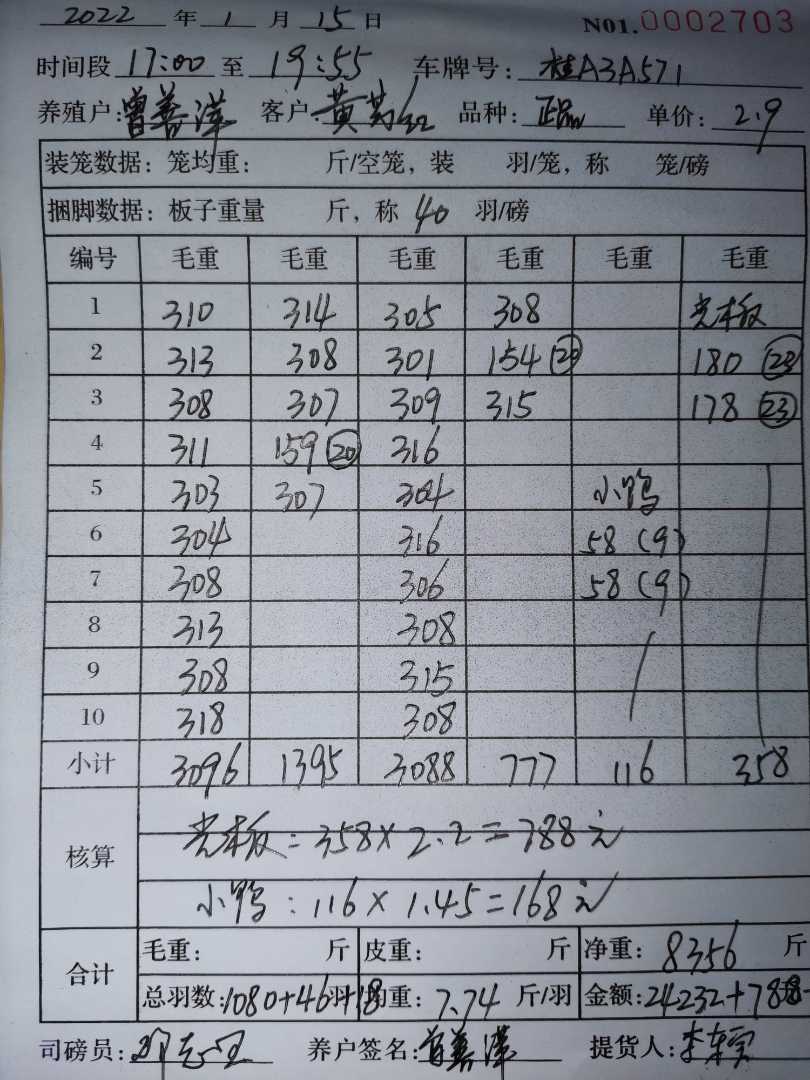 2022 年 1 月 15 日 N01.0002703
时间段 17:00 至 19:55 车牌号: 桂A3A571
养殖户: 曾善洋 客户: 黄 红 品种: 正品 单价: 2.9
装笼数据: 笼均重: 斤/空笼, 装 羽/笼, 称 笼/磅
捆脚数据: 板子重量 斤, 称 40 羽/磅
编号 毛重 毛重 毛重 毛重 毛重
1 310 314 305 308 光本板
2 313 308 301 154(20) 180(23)
3 308 307 309 315 178(23)
4 311 159(20) 316
5 303 307 304 小鸭
6 304 316 58(9)
7 308 306 58(9)
8 313 308
9 308 315
10 318 308
小计 3096 1395 3088 777 116 358
核算 光本板=358×2.2=788元
小鸭:116×1.45=168元
合计 毛重: 斤 皮重: 斤 净重: 8356 斤
总羽数:1080+46+18 均重: 7.74 斤/羽 金额:24232+788
司磅员: 养户签名: 曾善洋 提货人: